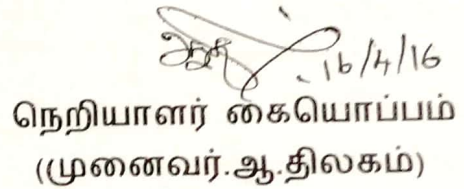 16/4/16
நெறியாளர் கையொப்பம்
(முனைவர்.ஆ.திலகம்)